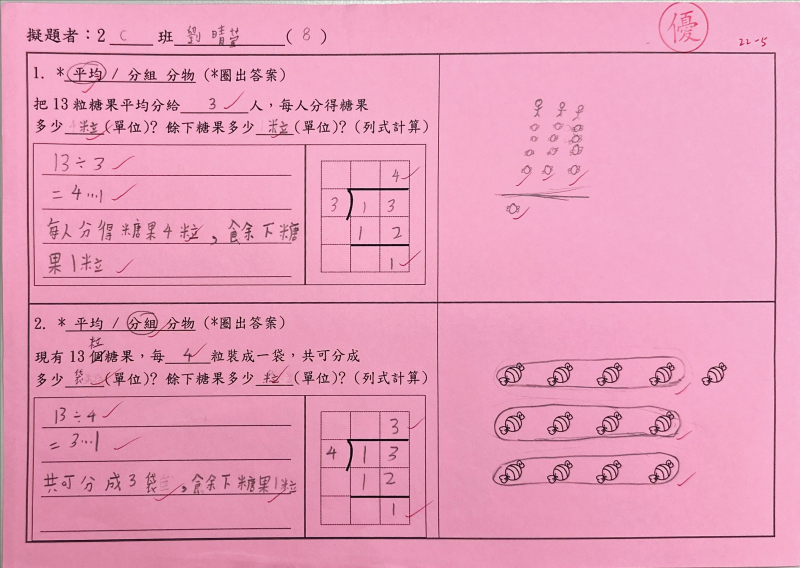 擬題者：2 C 班 劉晴萱 ( 8 )
優
22-5
1. * 平均 / 分組 分物 (*圈出答案)
把 13 粒糖果平均分給 3 人，每人分得糖果
多少 粒 (單位)? 餘下糖果多少 粒 (單位)? (列式計算)
13÷3
= 4…1
每人分得糖果4粒，餘下糖
果1粒
4
3 1 3
1 2
1
2. * 平均 / 分組 分物 (*圈出答案)
粒
現有 13 個糖果，每 4 粒裝成一袋，共可分成
多少 袋 (單位)? 餘下糖果多少 粒 (單位)? (列式計算)
13÷4
= 3…1
共可分成3袋，餘下糖果1粒
3
4 1 3
1 2
1